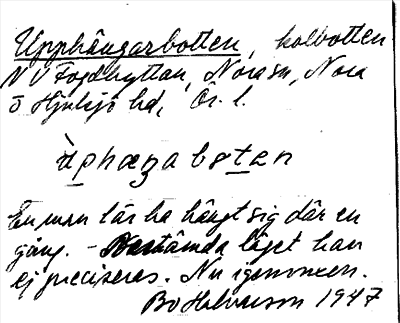 Upphängarbotten, kolbotten
NV Fogdhyttan, Nora sn, Nora
o Hjulsjö hd, Ör. l.
ùphæŋabɷtən
En man lär ha hängt sig där en
gång. – Bestämda läget kan
ej preciseras. Nu igenvuxen.
Bo Halvarson 1947